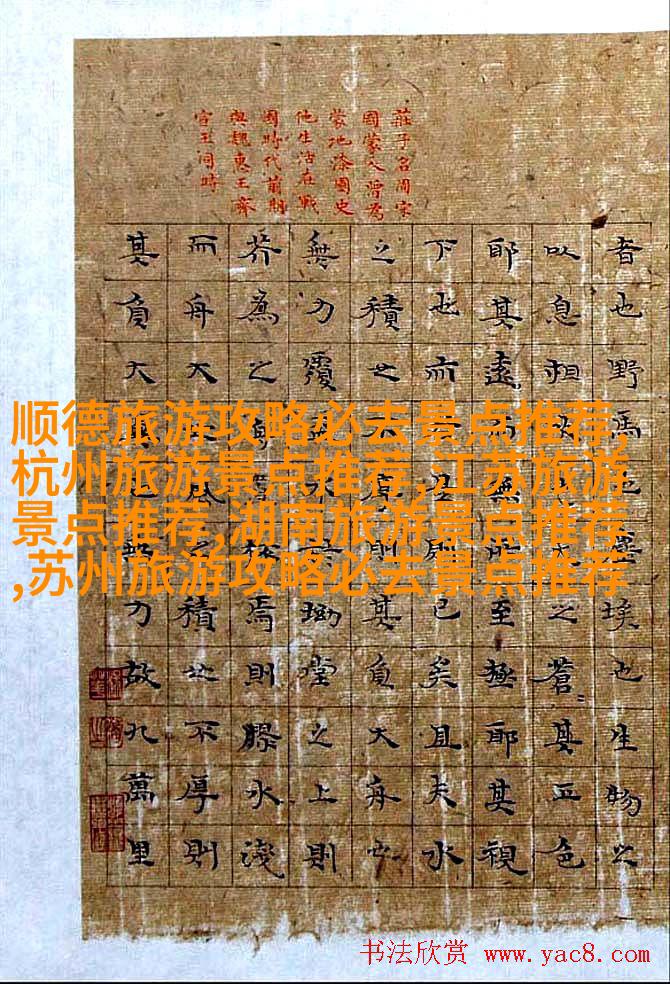 莊子名周宋
國蒙人曾為
蒙地漆園史
他生活在戰
國時代前期
與魏惠王齊
宣王同時
者也野馬也塵埃也生物之
以息相吹也天之蒼〻其正色
耶其遠而無所至極耶其視
下也而亦是則已矣且夫水
之積也不厚則其負大舟也
無力覆杯水於坳堂之上則
芥為之舟置杯焉則膠水淺
而舟大也風之積也不厚則
其負大翼也無力故九萬里
顺德旅游攻略必去景点推荐,
杭州旅游景点推荐,江苏旅游
景点推荐,湖南旅游景点推荐
,苏州旅游攻略必去景点推荐
书法欣赏 www.yac8.com